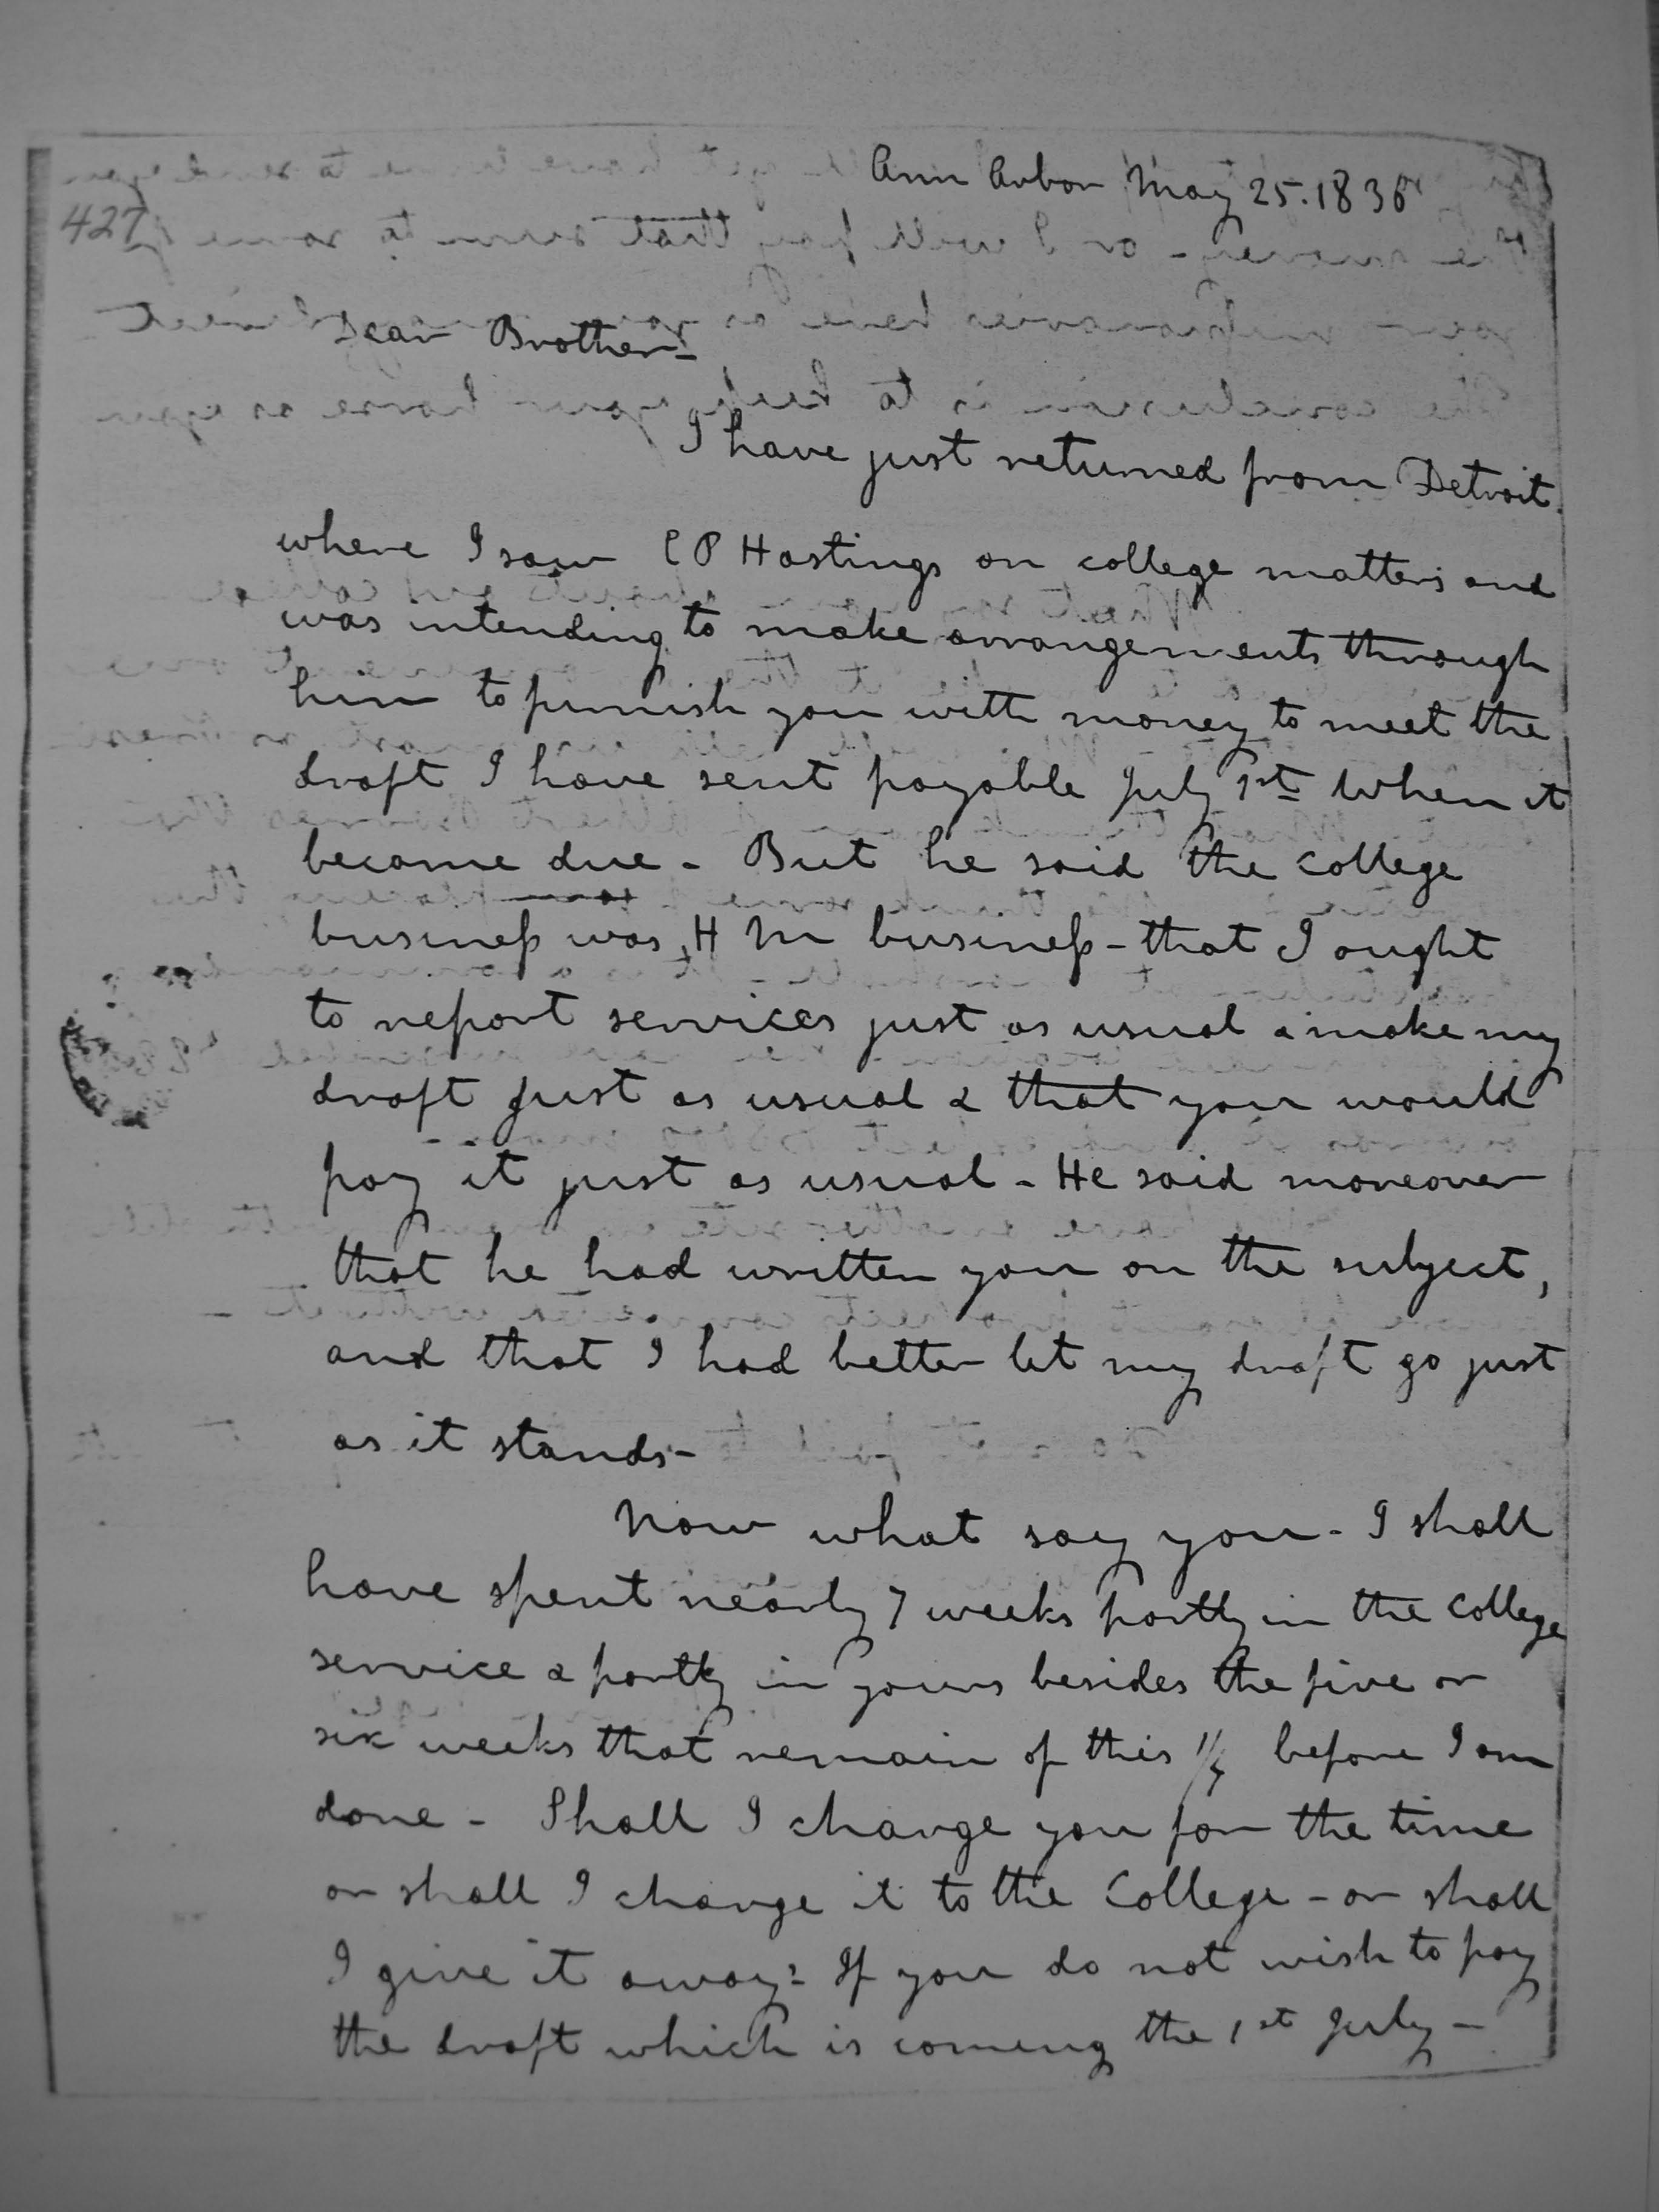 427
Ann Arbor May 25. 1838
Dear Brother -
I have just returned from Detroit.
where I saw E P Hastings on college matters and
was intending to make arrangements through
him to furnish you with money to meet the
draft I have sent payable July 1st When it
became due - But he said the college
business was, H M business - that I ought
to report services just as usual & make my
draft just as usual & that you would
pay it just as usual - He said moreover
that he had written you on the subject,
and that I had better let my draft go just
as it stands -
Now what say you - I shall
have spent nearly 7 weeks partly in the College
service & partly in yours besides the five or
six weeks that remain of this 1/4 before I am
done - Shall I charge you for the time
or shall I charge it to the College - or shall
I give it away? If you do not wish to pay
the draft which is coming the 1st July -